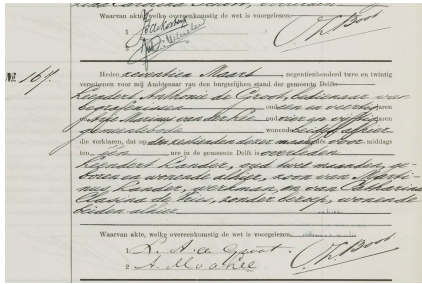 Waarvan akte, welke overeenkomstig de wet is voorgelezen.
1
2
Nº. 169.
Heden zeventien Maart, negentienhonderd twee en twintig
verschenen voor mij Ambtenaar van den burgerlijken stand der gemeente Delft:
Leendert Anthonie de Groot, bedienaar van
begrafenissen oud een en veertig jaren
en Arie Marinus van der Kee oud vier en vijftig jaren
gemeentebode wonende beiden alhier
die verklaren, dat op den zestienden dezer maand des voor middags
ten Een ure in de gemeente Delft is overleden
Leendert Kaader, oud twee maanden, ge-
boren en wonende alhier, zoon van Marti-
nus Kaader, werkman, en van Catharina
Clasina de Vries, zonder beroep, wonende
beiden alhier
Waarvan akte, welke overeenkomstig de wet is voorgelezen.
L. A. de Groot
2 A. M. v d Kee